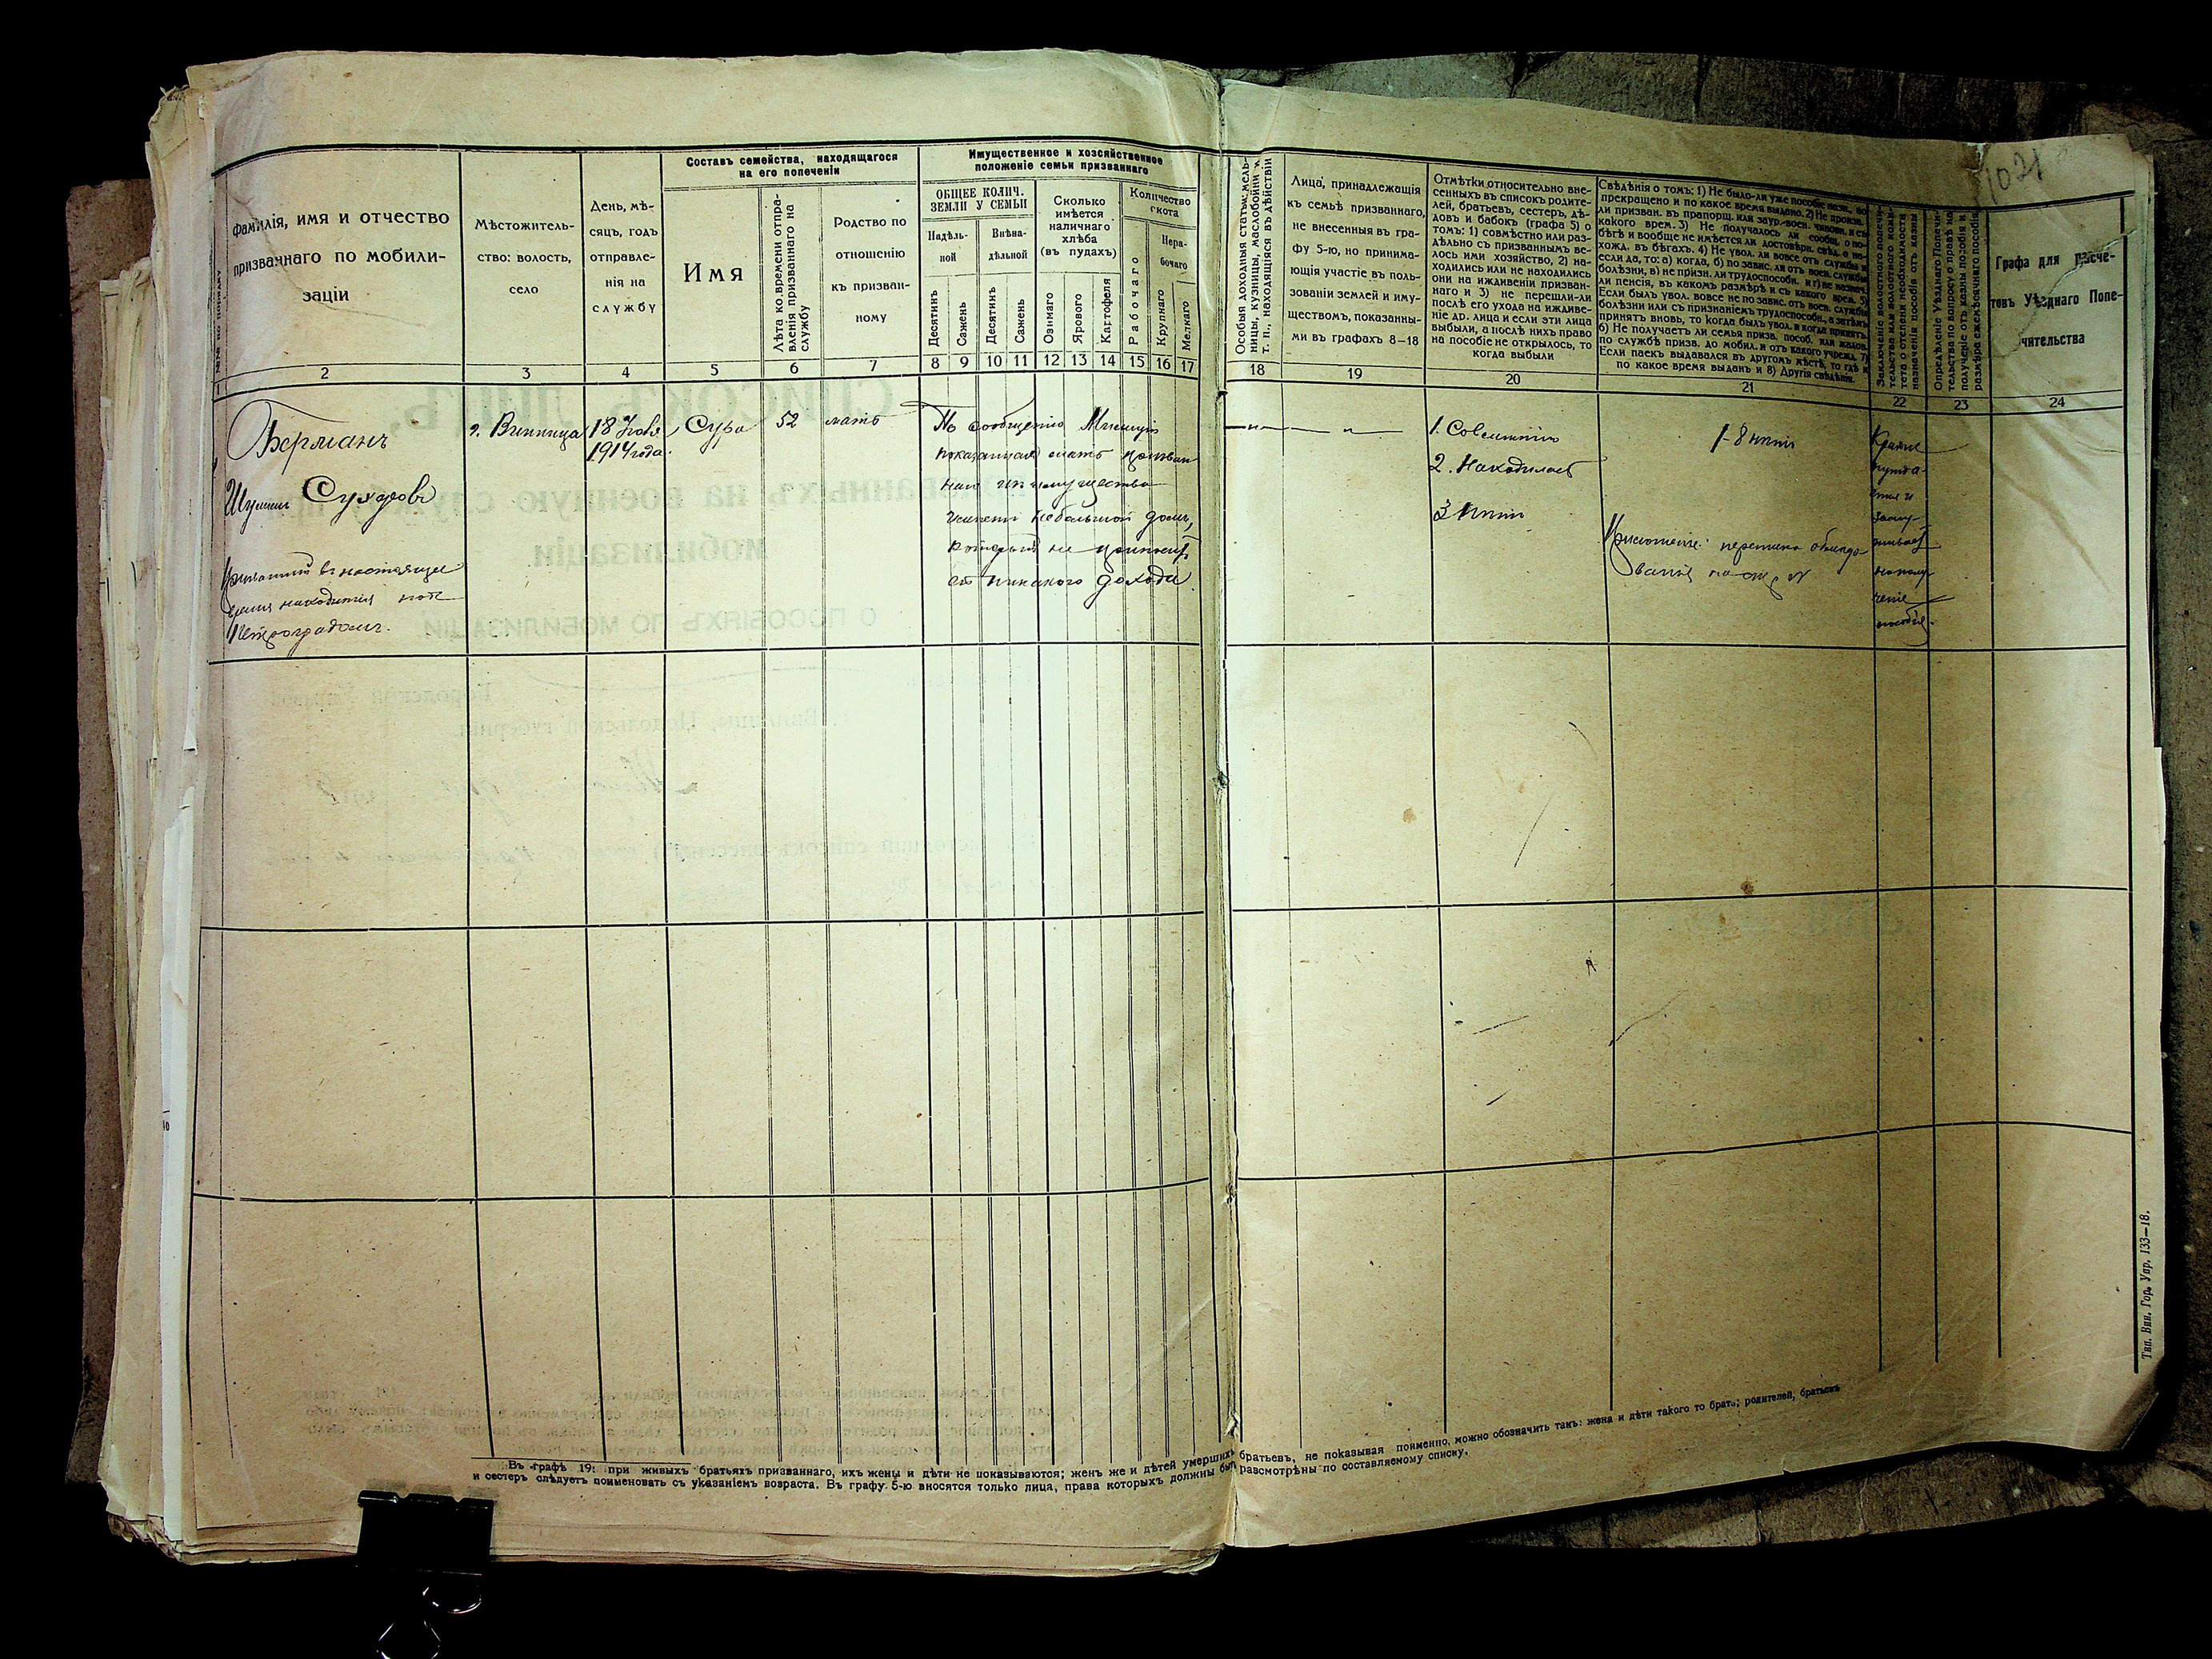 1021
№№ по порядку
Фамилія, имя и отчество
призваннаго по мобили-
заціи
Мѣстожитель-
ство: волость,
село
День, мѣ-
сяцъ, годъ
отправле-
нія на
службу
Составъ семейства, находящагося
на его попеченіи
Имя
Лѣта ко времени отпра-
вленія призваннаго на
службу
Родство по
отношенію
къ призван-
ному
Имущественное и хозяйственное
положеніе семьи призваннаго
ОБЩЕЕ КОЛИЧ.
ЗЕМЛИ У СЕМЬИ
Надѣль-
ной
Внѣна-
дѣльной
Десятинъ
Сажень
Десятинъ
Сажень
Сколько
имѣется
наличнаго
хлѣба
(въ пудахъ)
Озимаго
Ярового
Картофеля
Количество
скота
Рабочаго
Нера-
бочаго
Крупнаго
Мелкаго
Особыя доходныя статьи: мель-
ницы, кузницы, маслобойни и
т. п., находящіяся въ дѣйствіи
Лица, принадлежащія
къ семьѣ призваннаго,
не внесенныя въ гра-
фу 5-ю, но принима-
ющія участіе въ поль-
зованіи землей и иму-
ществомъ, показанны-
ми въ графахъ 8—18
Отмѣтки относительно вне-
сенныхъ въ списокъ родите-
лей, братьевъ, сестеръ, дѣ-
довъ и бабокъ (графа 5) о
томъ: 1) совмѣстно или раз-
дѣльно съ призваннымъ ве-
лось ими хозяйство, 2) на-
ходились или не находились
они на иждивеніи призван-
наго и 3) не перешли-ли
послѣ его ухода на иждиве-
ніе др. лица и если эти лица
выбыли, а послѣ нихъ право
на пособіе не открылось, то
когда выбыли
Свѣдѣнія о томъ: 1) Не было-ли уже пособіе назн., но
прекращено и по какое время выдано. 2) Не произв.
ли призван. въ прапорщ. или заур.-воен. чиновн. и съ
какого врем. 3) Не получалось ли сообщ. о по-
бѣгѣ и вообще не имѣется ли достовѣрн. свѣд. о на-
хожд. въ бѣгахъ. 4) Не увол. ли вовсе отъ службы и
если да, то: а) когда, б) по завис. ли отъ воен. службы
болѣзни, в) не призн. ли трудоспособн. и г) не назнач.
ли пенсія, въ какомъ размѣрѣ и съ какого врем. 5)
Если былъ увол. вовсе не по завис. отъ воен. службы
болѣзни или съ признаніемъ трудоспособн., а затѣмъ
принятъ вновь, то когда былъ увол. и когда принятъ.
6) Не получаетъ ли семья призв. пособ. или жалов.
по службѣ призв. до мобил. и отъ какого учрежд. 7)
Если паекъ выдавался въ другомъ мѣстѣ, то гдѣ и
по какое время выданъ и 8) Другія свѣдѣнія.
Заключеніе волостного попечи-
тельства или волостного коми-
тета о степени необходимости
назначенія пособія отъ казны
Опредѣленіе Уѣзднаго Попечи-
тельства по вопросу о правѣ на
полученіе отъ казны пособія и
размѣрѣ ежемѣсячнаго пособія
Графа для расче-
товъ Уѣзднаго Попе-
чительства
1 2 3 4 5 6 7 8 9 10 11 12 13 14 15 16 17 18 19 20 21 22 23 24
Берманъ
Сухеровъ
Призванный въ настоящее
время находится подъ
Петроградомъ.
г. Винница
18 Ноября
1914 года.
Сура
52
мать
По сообщенію Милиціи
показанная мать призван
ной
небольшой домъ,
который не приноситъ
ей никакого дохода.
— " — " —
1. Совмѣстно
2. Находилась
3 Нѣтъ
1-8 нѣтъ
Крайне
нужда-
ется и
заслу-
живаетъ
на полу-
ченіе
пособія.
Въ графѣ 19: при живыхъ братьяхъ призваннаго, ихъ жены и дѣти не показываются; женъ же и дѣтей умершихъ братьевъ, не показывая поименно, можно обозначить такъ: жена и дѣти такого то брата; родителей, братьевъ
и сестеръ слѣдуетъ поименовать съ указаніемъ возраста. Въ графу 5-ю вносятся только лица, права которыхъ должны быть разсмотрѣны по составляемому списку.
Тип. Вин. Гор. Упр. 133—18.